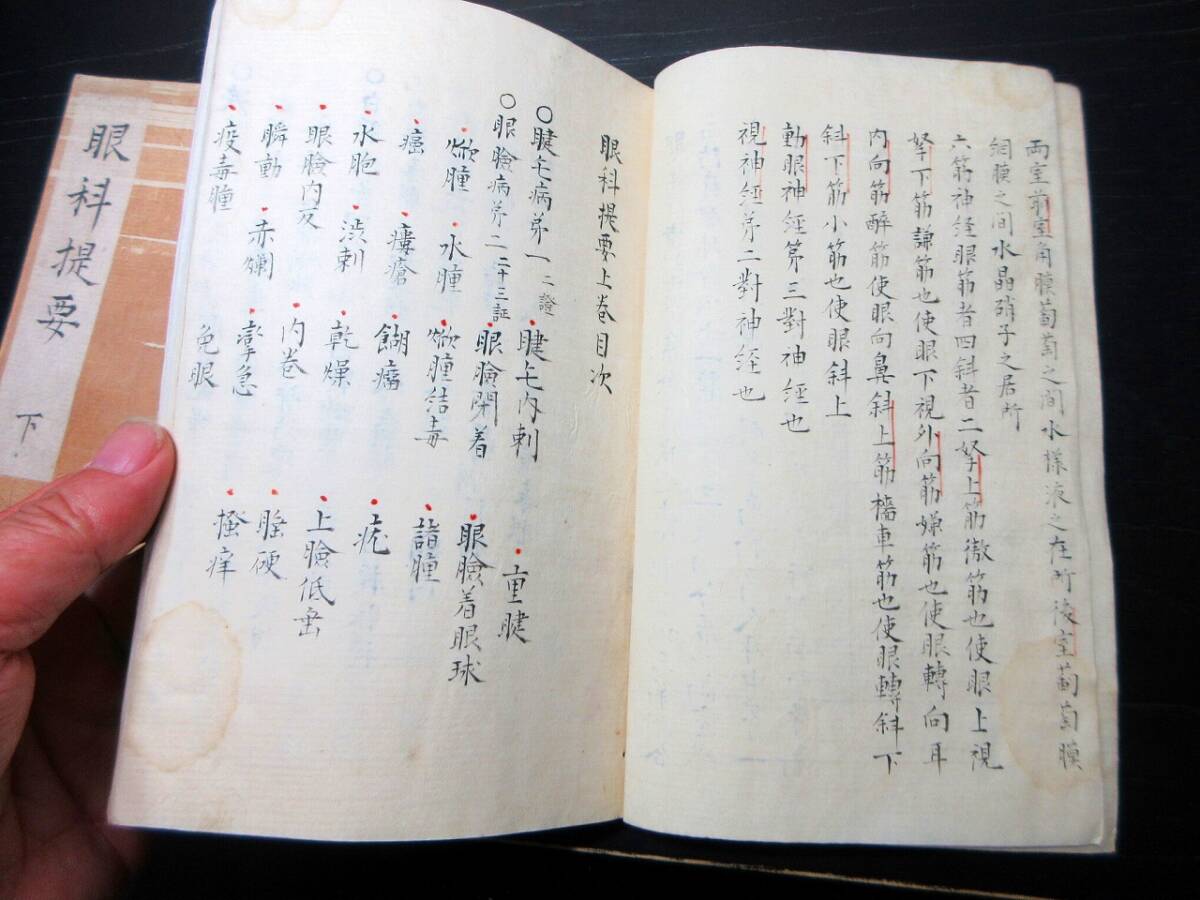 両室前室角膜葡萄之間水様液之在所後室葡萄膜
網膜之間水晶硝子之居所
六筋神経眼筋者四斜者二拏上筋傲筋也使眼上視
拏下筋謙筋也使眼下視外向筋嫌筋也使眼轉向耳
内向筋酔筋使眼向鼻斜上筋檣車筋也使眼轉斜下
斜下筋小筋也使眼斜上
動眼神経第三對神経也
視神経第二對神経也
眼科提要上巻目次
○睫毛病第一二證 睫毛内刺 重睫
○眼瞼病第二二十三証 眼瞼閉着 眼瞼着眼球
焮腫 水腫 焮腫結毒 諧腫
癌 瘻瘡 餬瘍 疣
水胞 渋刺 乾燥 上瞼低垂
眼瞼内反 内巻
瞬動 赤爛 攣急 腫硬
疫毒腫 兔眼 搔痒
眼科提要
下